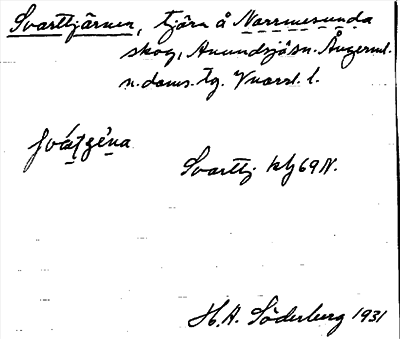 Svarttjärnen, tjärn å Norrmesunda
skog, Anundsjösn. Ångerml.
n. doms. tg. Vnorrl. l.
Svarttj. kbl 69 N.
H. A. Söderberg 1931